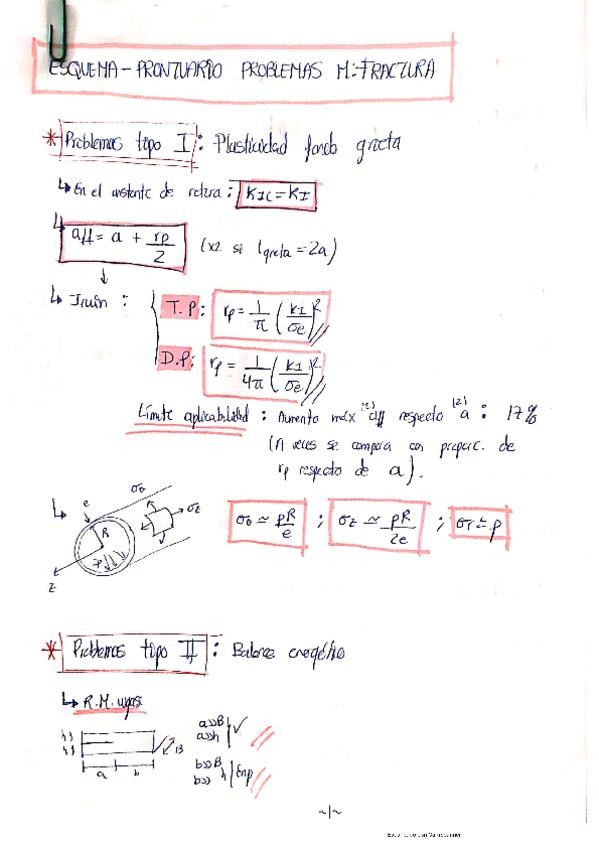 ESQUEMA - PRONTUARIO PROBLEMAS M. FRACTURA
* Problemas tipo I : Plasticidad fondo grieta
↳ En el instante de rotura : KIC = KI
↳ aff = a + rp/2 (x2 si lgrieta = 2a)
↳ Irwin :
T.P : rp = 1/π (KI/σe)²
D.P : rp = 1/4π (KI/σe)²
Límite aplicabilidad : Aumento máx (2) aff respecto (2) a : 17%
(A veces se compara con proporc. de
rp respecto de a).
↳ e R σθ σz z
σθ ≃ pR/e ; σz ≃ pR/2e ; σr ≃ p
* Problemas tipo II : Balance energético
↳ R.M. vigas
h } a>>B
h } a>>h ✓
B
b>>B
b>>h Enp
a b
~1~